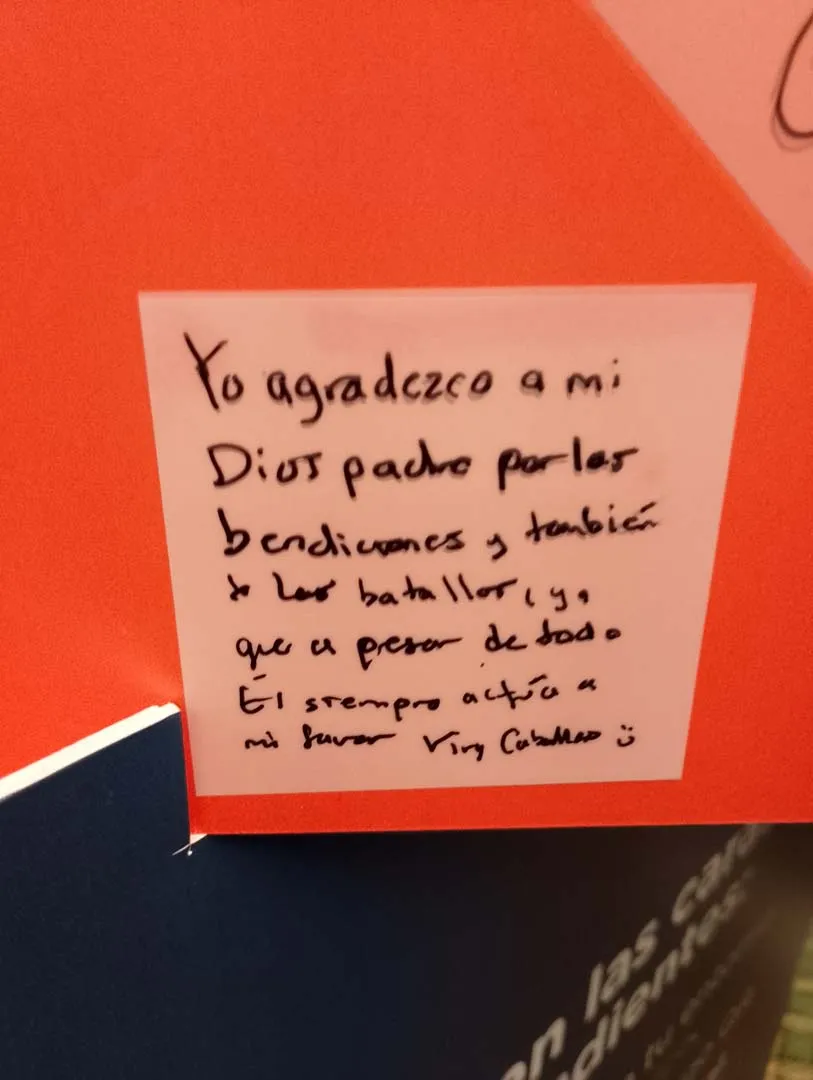 Yo agradezco a mi
Dios padre por las
bendiciones y también
las batallas, ya
que a pesar de todo
Él siempre actúa a
mi favor Viry Caballero ü
en las car
dientes:
tu